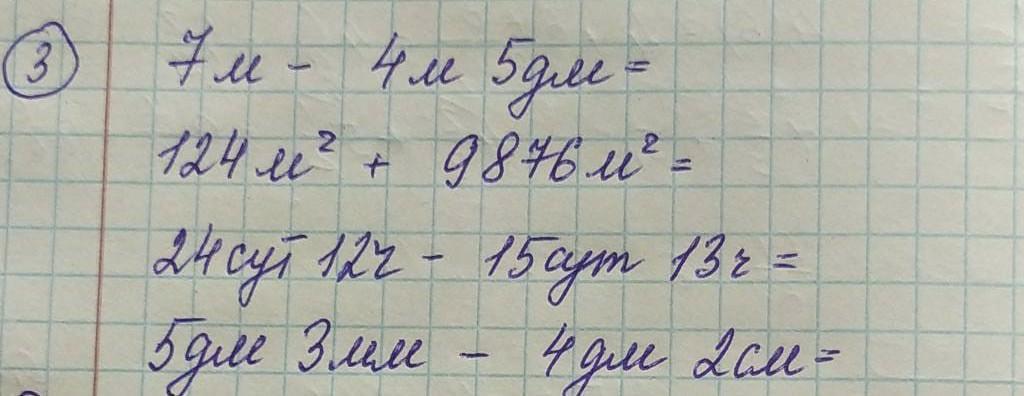 ③ 7м - 4м 5дм =
124м² + 9876м² =
24сут 12ч - 15сут 13ч =
5дм 3мм - 4дм 2см =